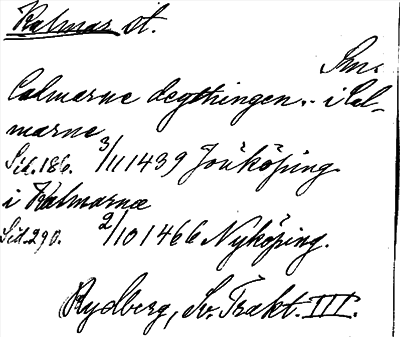 Kalmar st.
Sm.
Calmarne degthingen.. i Cal-
marne
Sid. 186. 3/11 1439 Jönköping
i Kalmarnæ
Sid. 290. 2/10 1466 Nyköping.
Rydberg, Sv. Trakt. III.